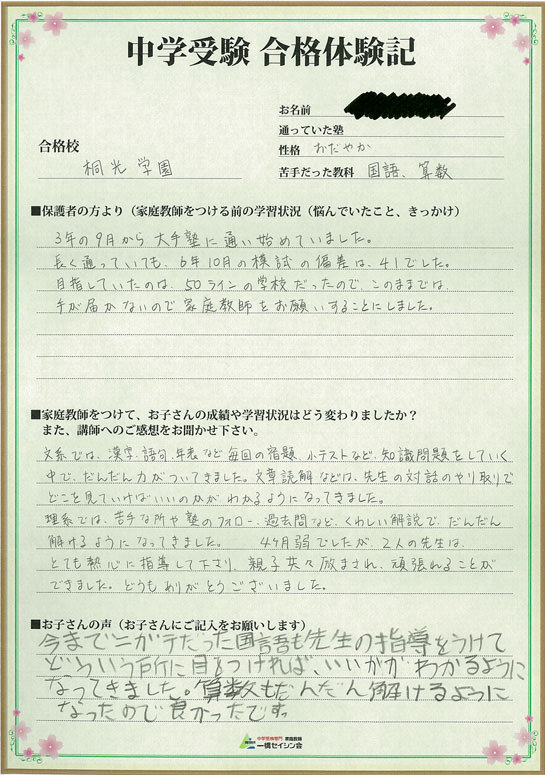 中学受験 合格体験記
お名前
通っていた塾
合格校
性格 おだやか
桐光学園
苦手だった教科 国語、算数
■保護者の方より（家庭教師をつける前の学習状況（悩んでいたこと、きっかけ）
3年の9月から大手塾に通い始めていました。
長く通っていても、6年10月の模試の偏差は、41でした。
目指していたのは、50ラインの学校だったので、このままでは、
手が届かないので家庭教師をお願いすることにしました。
■家庭教師をつけて、お子さんの成績や学習状況はどう変わりましたか？
また、講師へのご感想をお聞かせ下さい。
文系では、漢字、語句、年表など毎回の宿題、小テストなど、知識問題をしていく
中で、だんだん力がついてきました。文章読解などは、先生の対話のやり取りで
どこを見ていけばいいのかが わかるようになってきました。
理系では、苦手な所や塾のフォロー、過去問など、くわしい解説で、だんだん
解けるようになってきました。 4ヶ月弱でしたが、2人の先生は、
とても熱心に指導して下さり、親子共々励まされ、頑張れることが
できました。どうもありがとうございました。
■お子さんの声（お子さんにご記入をお願いします）
今までニガテだった国語も先生の指導をうけて
どういう所に目をつければ、いいかが わかるように
なってきました。算数もだんだん解けるように
なったので良かったです。
中学受験専門 家庭教師
一橋セイシン会